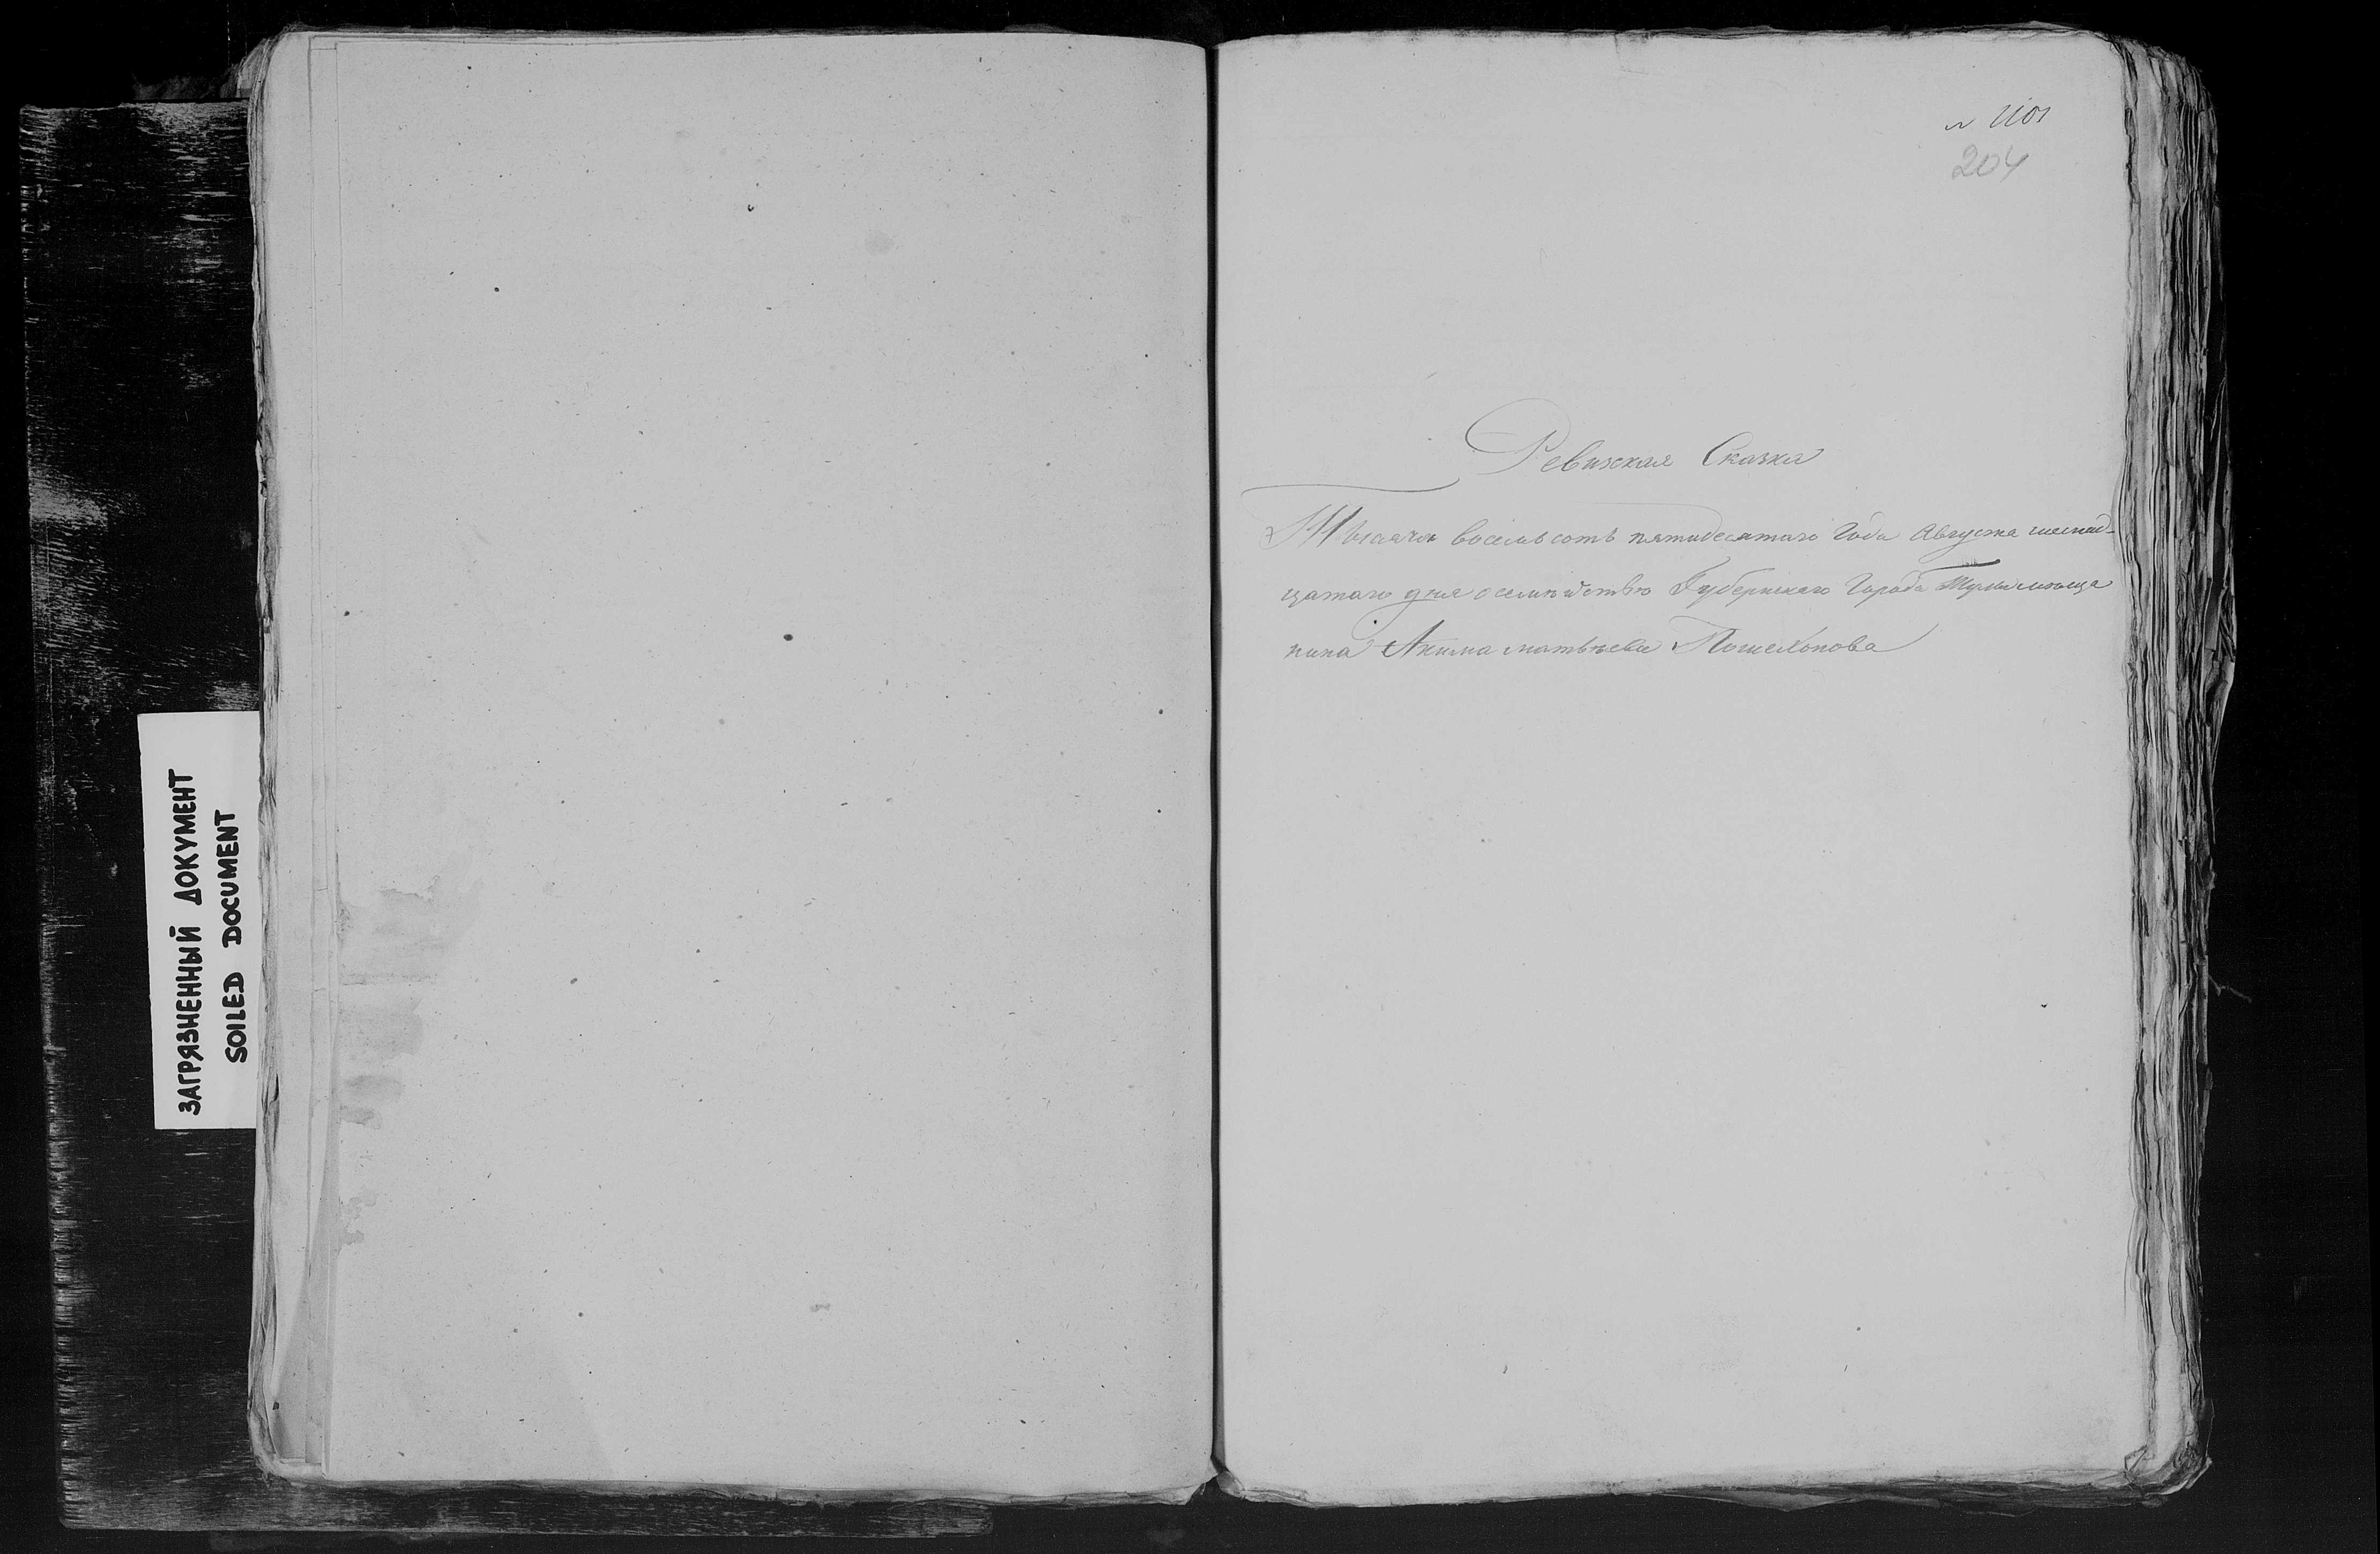 ЗАГРЯЗНЕННЫЙ ДОКУМЕНТ
SOILED DOCUMENT
204
Ревизская Сказка
Тысяча восемь сотъ пятидесятаго Года Августа шеснад-
цатаго дня о семѣйствѣ Губернскаго Города Тулы мѣща
нина Акима матвѣева Пошехонова